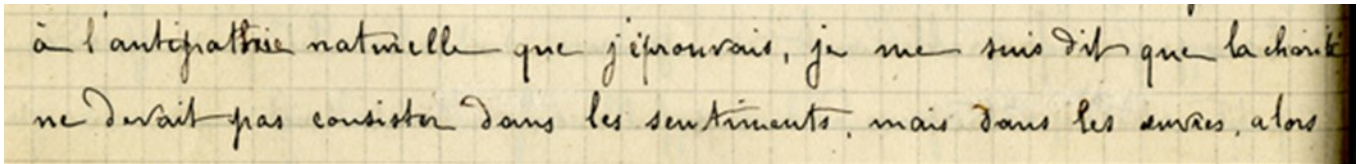 à l'antipathie naturelle que j'éprouvais, je me suis dit que la charité
ne devait pas consister dans les sentiments, mais dans les œuvres, alors